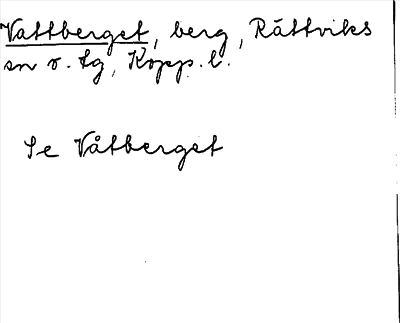 Vattberget, berg, Rättviks
sn o. tg, Kopp. l.
Se Våtberget